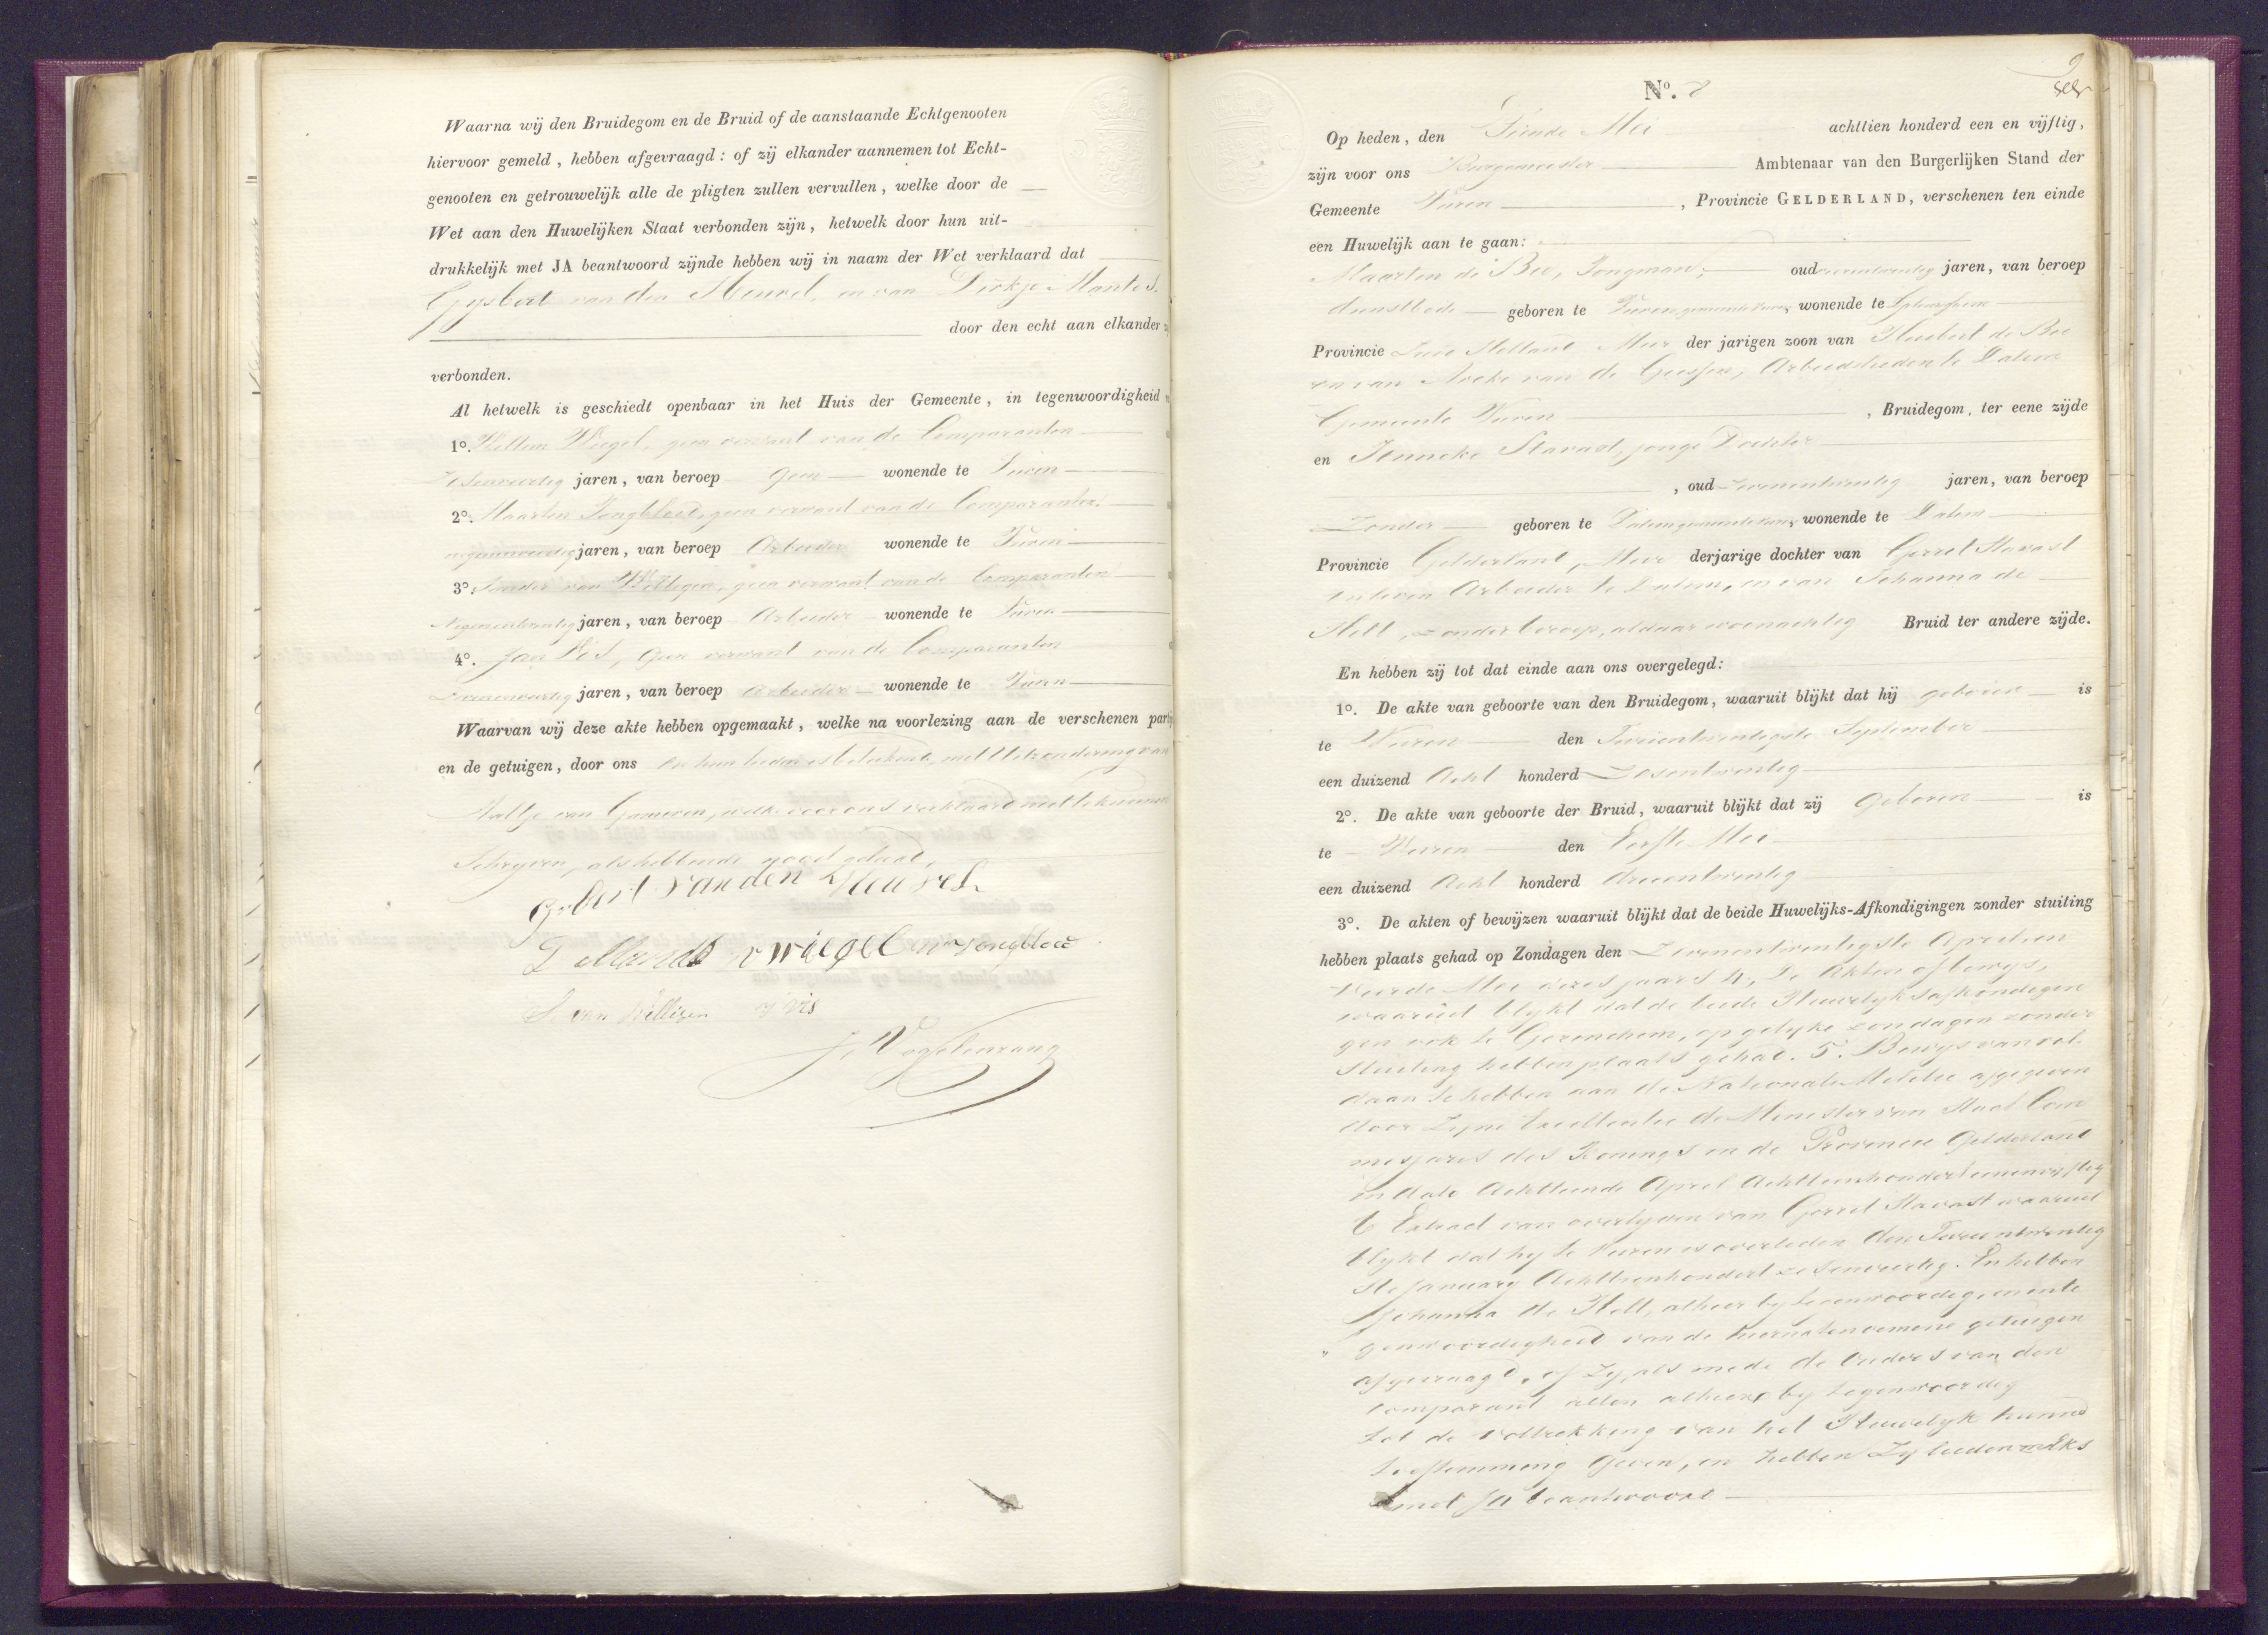 Waarna wij den Bruidegom en de Bruid of de aanstaande Echtgenooten
hiervoor gemeld, hebben afgevraagd: of zij elkander aannemen tot Echt-
genooten en getrouwelijk alle de pligten zullen vervullen, welke door de
Wet aan den Huwelijken Staat verbonden zijn, hetwelk door hun uit-
drukkelijk met JA beantwoord zijnde hebben wij in naam der Wet verklaard dat
Gysbert van den Heuvel, en van Dirkje Mants.
door den echt aan elkander
verbonden.
Al hetwelk is geschiedt openbaar in het Huis der Gemeente, in tegenwoordigheid
1o. Willem Wiegel, geen verwant van de Comparanten
jaren, van beroep geen wonende te Vuren
2o. Maarten Jongbloed, geen verwant van de Comparanten.
jaren, van beroep Arbeider wonende te Vuren
3o. van Willigen, geen verwant van de Comparanten
Negenentwintig jaren, van beroep Arbeider wonende te Vuren
4o. Jan Vis, geen verwant van de Comparanten
jaren, van beroep Arbeider wonende te Vuren
Waarvan wij deze akte hebben opgemaakt, welke na voorlezing aan de verschenen part
en de getuigen, door ons en hun lieden is betekend, met uitzondering van
van Gameren, welke voor ons verklaard niet te kunnen
Schryven, als hebbende nooit geleerd.
Gysbert van den Heuvel
D Mants W Wiegel M Jongbloed
S. van Willigen J Vis
J. Vogelenzang
No. 8
Op heden, den Tiende Mei achttien honderd een en vijftig,
zijn voor ons Burgemeester Ambtenaar van den Burgerlijken Stand der
Gemeente Vuren, Provincie GELDERLAND, verschenen ten einde
een Huwelijk aan te gaan:
Maarten de Bie, Jongman, oud jaren, van beroep
dienstbode geboren te Vuren gemeente Vuren, wonende te
Provincie Zuid Holland Meer der jarigen zoon van Huibert de Bie
en van de Arbeidslieden te Dalem
Gemeente Vuren, Bruidegom, ter eene zijde
en Jenneke Stavast, jonge Dochter
, oud Zevenentwintig jaren, van beroep
Zonder geboren te Dalem gemeente Vuren, wonende te Dalem
Provincie Gelderland, Meer derjarige dochter van Gerrit Stavast
in leven Arbeider te Dalem, en van Johanna de
Hell, zonder beroep, aldaar woonachtig Bruid ter andere zijde.
En hebben zij tot dat einde aan ons overgelegd:
1o. De akte van geboorte van den Bruidegom, waaruit blijkt dat hij geboren is
te Vuren den September
een duizend Acht honderd Zesentwintig
2o. De akte van geboorte der Bruid, waaruit blijkt dat zij Geboren is
te Vuren den Eerste Mei
een duizend Acht honderd drieentwintig
3o. De akten of bewijzen waaruit blijkt dat de beide Huwelijks-Afkondigingen zonder stuiting
hebben plaats gehad op Zondagen den Zevenentwintigste April en
Vierde Mei dezes jaars 4. De Akten of bewijs,
waaruit blykt dat de beide Huwelyksafkondigin
gen ook te Gorinchem, op gelyke zondagen zonder
stuiting hebben plaats gehad. 5. Bewys van vol-
daan te hebben aan de Nationale Militie afgegeven
door Zyne Excellentie de Minister van Staat Com
missaris des Konings in de Provincie Gelderland
in dato Achttiende April Achttienhonderd eenenvyftig
6 Extract van overlyden van Gerrit Stavast waaruit
blykt dat hy te Vuren is overleden den
ste January Achttienhonderd zesenveertig. En hebben
Johanna de Hell, alhier
genwoordigheid van de hierna tenoemene getuigen
afgevraagd, of zy, als mede de ouders van den
comparant allen alhier by tegenwoordig
tot de voltrekking van het Huwelyk hunne
toestemming geven, en hebben Zy lieden
met Ja beantwoord